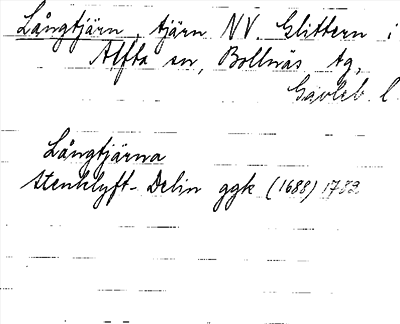 Långtjärn, tjärn NV. Glittern i
Alfta sn, Bollnäs tg,
Gävleb. l
Långtjärna
Stenklyft-Delin ggk (1688) 1782